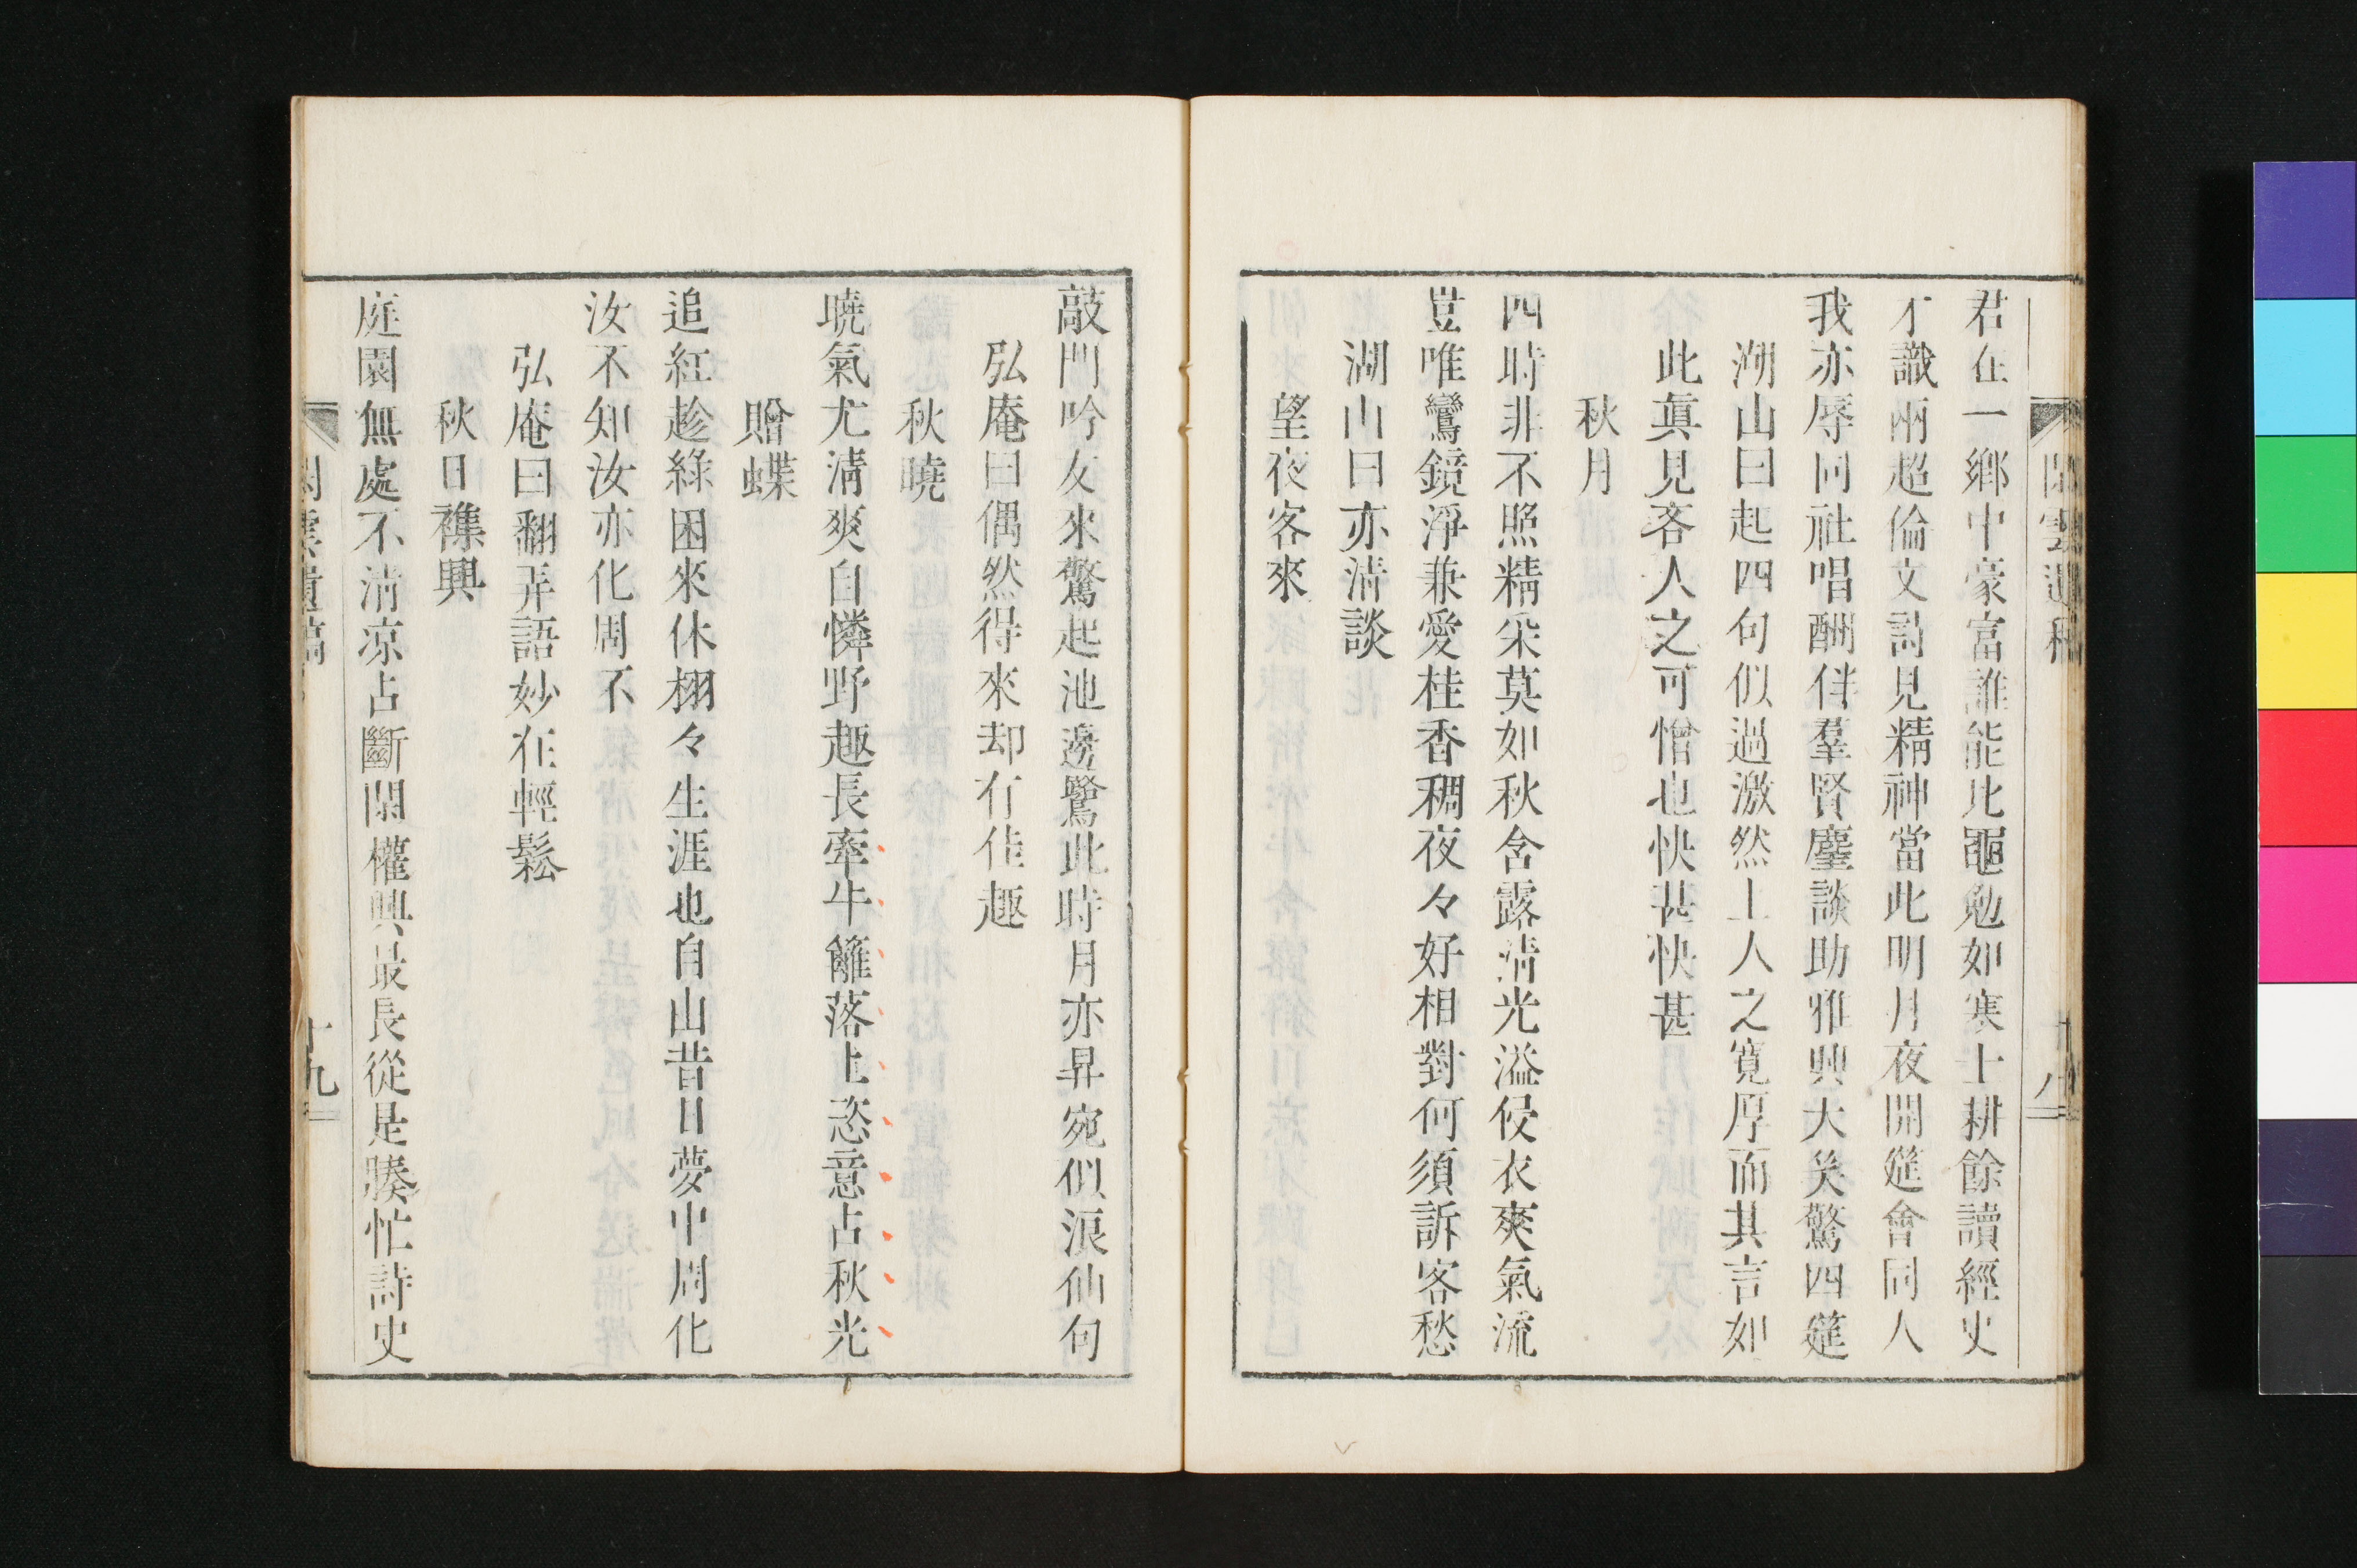 君在一鄉中豪富誰能比黽勉如寒士耕餘讀經史
才識兩超倫文詩見精神當此明月夜開筵會同人
我亦辱同社唱酬伴羣賢麈談助雅興大笑驚四筵
湖山曰起四句似過激然上人之寬厚而其言如
此眞見吝人之可憎也快甚快甚
秋月
四時非不照精采莫如秋含露淸光溢侵衣爽氣流
豈唯鸞鏡淨兼愛桂香稠夜々好相對何須訴客愁
湖山曰亦淸談
望夜客來
敲門吟友來驚起池邊鷺此時月亦昇宛似浪仙句
弘庵曰偶然得來却有佳趣
秋曉
曉氣尤淸爽自憐野趣長牽牛籬落上恣意占秋光
贈蝶
追紅趁綠困來休栩々生涯也自由昔日夢中周化
汝不知汝亦化周不
弘庵曰翻弄語妙在輕鬆
秋日襍興
庭園無處不淸凉占斷閑權興最長從是騷忙詩史
閑雲遺稿
十九